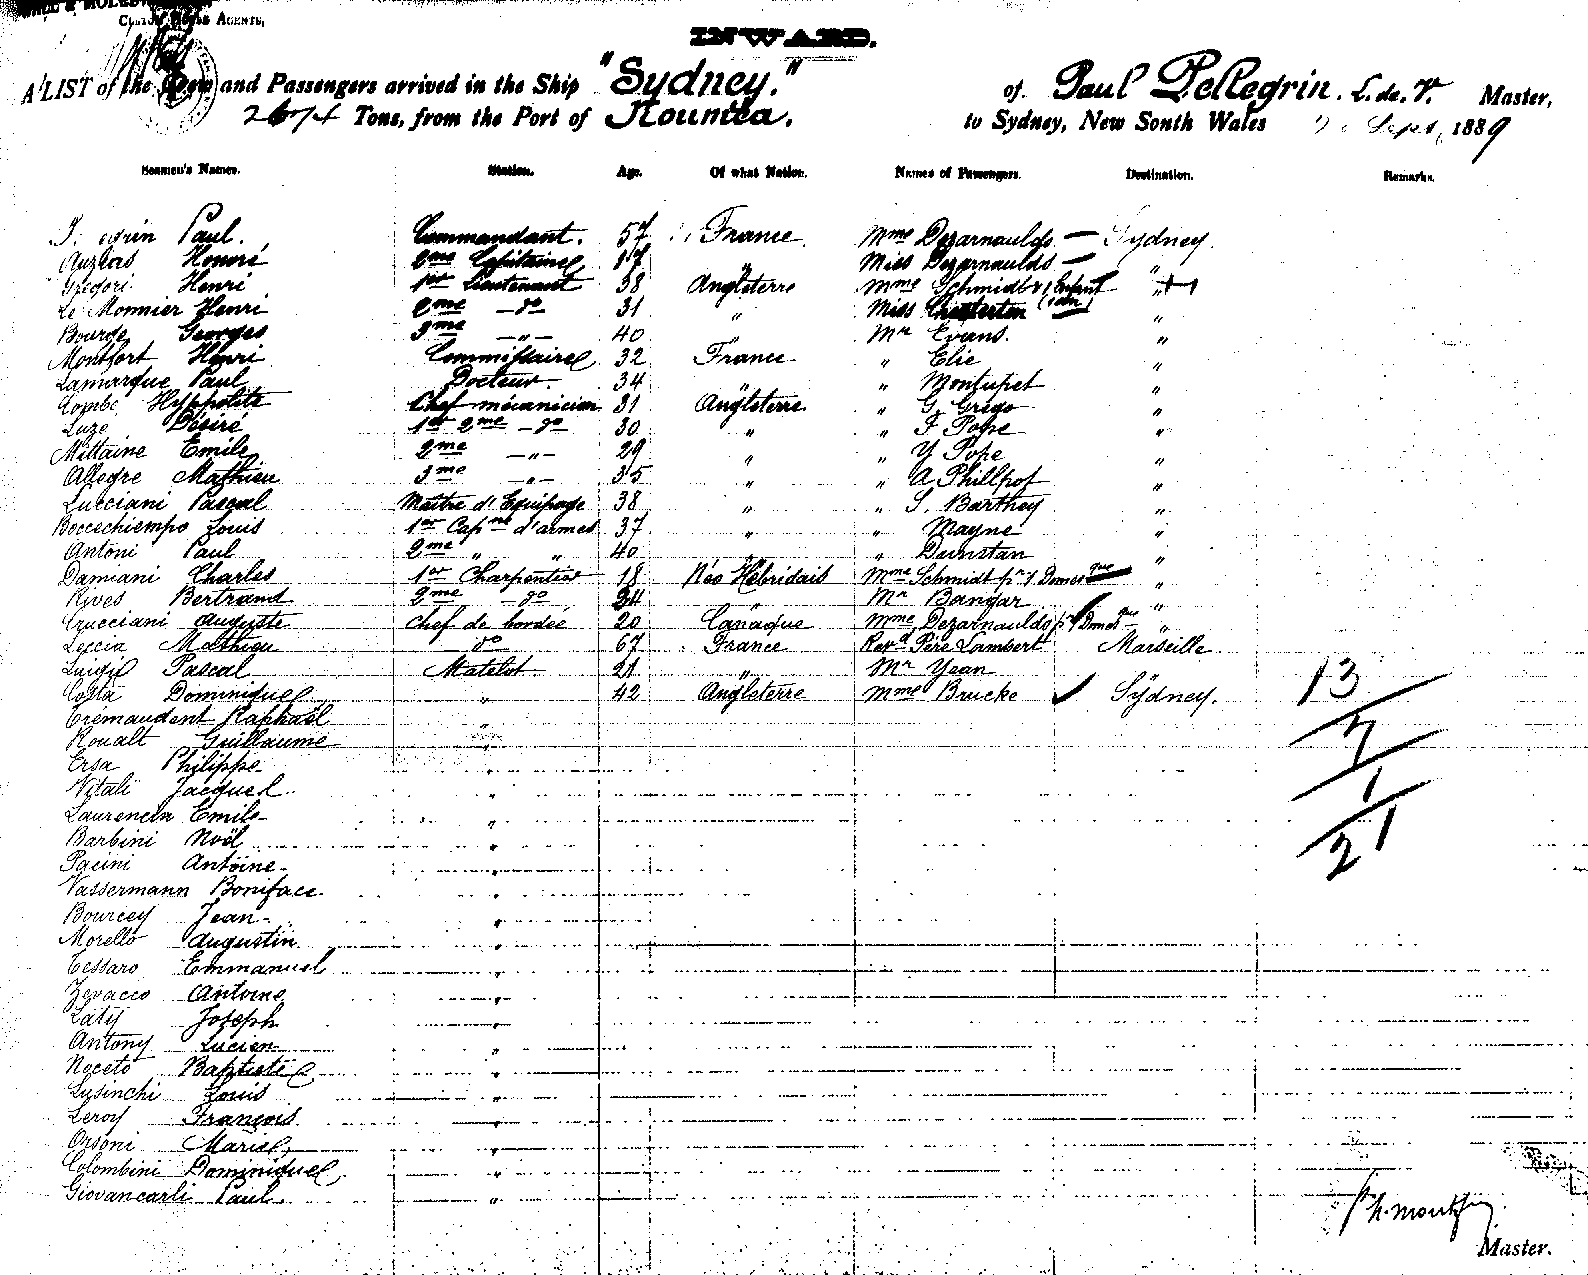 CUSTOM HOUSE AGENTS,
INWARD.
A LIST of the Crew and Passengers arrived in the Ship "Sydney." of Paul Pellegrin. L. de. V. Master,
2674 Tons, from the Port of Nouméa. to Sydney, New South Wales Sept. 1889
Seamen's Names. Station. Age. Of what Nation. Names of Passengers. Destination. Remarks.
Paul. Commandant. 57 France. Mme Dezarnaulds — Sydney.
Auzias Honoré 2me Capitaine 17 " Miss Dezarnaulds — "
Grégori Henri 1er Lieutenant 38 Angleterre Mme Schmidt & 1 Enfant "
Le Monnier Henri 2me — do 31 " Miss Chesterton "
Bourde Georges 3me — " — 40 " Mr Evans. "
Montfort Henri Commissaire 32 France " Elie "
Lamarque Paul Docteur. 34 " " Montupet "
Combe Hyppolite Chef mécanicien 31 Angleterre " G. Grego "
Luze Désiré 1er 2me — do 30 " " F Pope "
Mittaine Emile 2me — " — 29 " " Y Pope "
Allegre Mathieu 3me — " — 35 " " A Phillpot "
Lucciani Pascal Maître d'Equipage 38 " " S. Barthey "
Boccechiempo Louis 1er Capne d'armes 37 " " Mayne "
Antoni Paul 2me " " 40 " " Dunstan "
Damiani Charles 1er Charpentier 18 Néo Hébridais Mme Schmidt pr 1 Domesque "
Rives Bertrand 2me — do " Mr Bangar "
Crucciani Auguste Chef de bordée 20 Canaque Mme Dezarnaulds pr 1 Domesque "
Leccia Mathieu do 67 France Revd Père Lambert Marseille
Luigi Pascal Matelot. 21 " Mr Yean "
Costa Dominique " 42 Angleterre Mme Brucke Sydney.
13
Tremaudent Raphaël "
7
Roualt Guillaume "
Ersa Philippe "
Vitali Jacques "
1
Laurencin Emile "
21
Barbini Noël "
Pacini Antoine "
Vassermann Boniface "
Bourcey Jean "
Morello Augustin "
Tessaro Emmanuel "
Zevacco Antoine "
Laty Joseph "
Antony Lucien "
Noceto Baptiste "
Lusinchi Louis "
Leroy François "
Orsoni Marie "
Colombini Dominique "
Giovancarli Paul. "
Master.